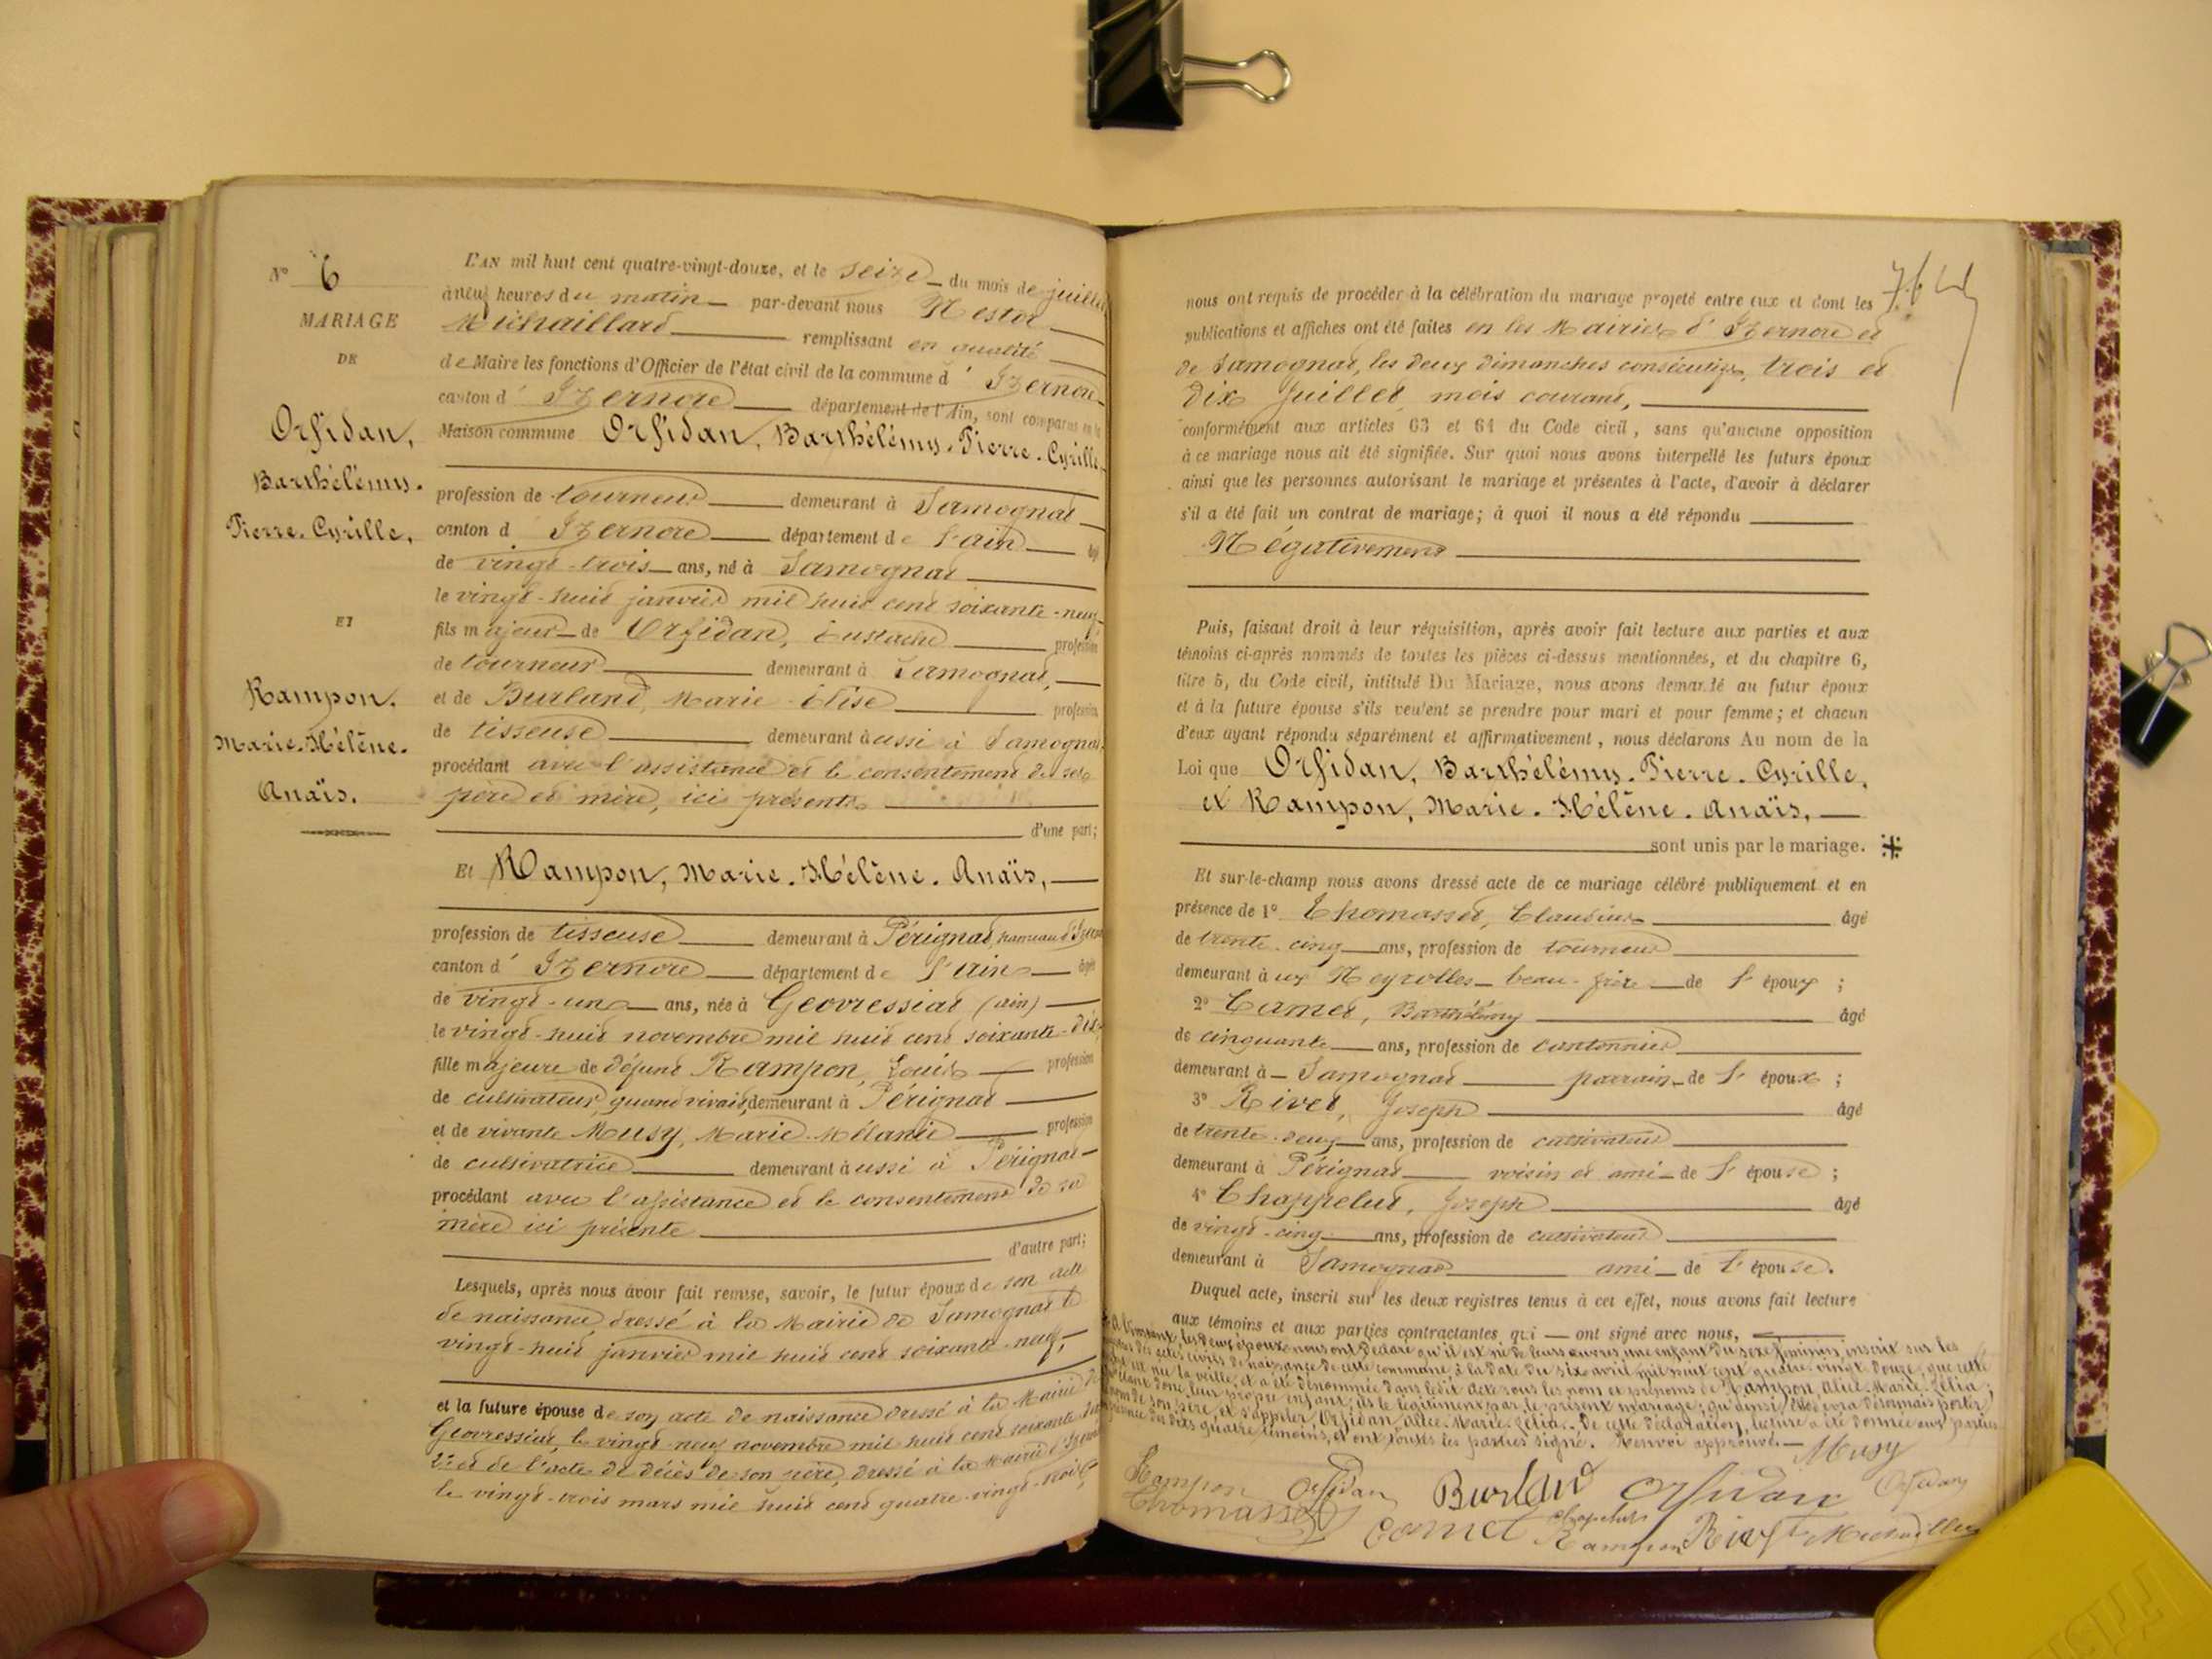 N° 6
MARIAGE
DE
Orsidan,
Barthélémy.
Pierre. Cyrille,
ET
Rampon.
Marie. Hélène.
Anaïs.
L'AN mil huit cent quatre-vingt-douze, et le seize du mois de juillet
à neuf heures du matin par-devant nous Nestor
Michaillard remplissant en qualité
de Maire les fonctions d'Officier de l'état civil de la commune d'Izernore
canton d'Izernore département de l'Ain, sont comparus en la
Maison commune Orsidan, Barthélémy. Pierre. Cyrille
profession de tourneur demeurant à Samognat
canton d'Izernore département de l'ain âgé
de vingt-trois ans, né à Samognat
le vingt-huit janvier mil huit cent soixante-neuf
fils majeur de Orsidan, Eustache profession
de tourneur demeurant à Samognat,
et de Burland, Marie-Elise profession
de tisseuse demeurant aussi à Samognat
procédant avec l'assistance et le consentement de ses
père et mère, ici présents
d'une part;
Et Rampon, Marie. Hélène. Anaïs,
profession de tisseuse demeurant à Pérignat, hameau d'Izernore
canton d'Izernore département de l'ain âgée
de vingt-un ans, née à Geovressiat (ain)
le vingt-huit novembre mil huit cent soixante-dix
fille majeure de défunt Rampon, Louis profession
de cultivateur, quand vivait, demeurant à Pérignat
et de vivante Musy, Marie-Mélanie profession
de cultivatrice demeurant aussi à Pérignat
procédant avec l'assistance et le consentement de sa
mère ici présente
d'autre part;
Lesquels, après nous avoir fait remise, savoir, le futur époux de son acte
de naissance, dressé à la Mairie de Samognat le
vingt-huit janvier mil huit cent soixante-neuf,
et la future épouse de son acte de naissance dressé à la Mairie de
Geovressiat, le vingt-neuf novembre mil huit cent soixante-dix
2° et de l'acte de décès de son père, dressé à la Mairie d'Izernore
le vingt-trois mars mil huit cent quatre-vingt-trois,
nous ont requis de procéder à la célébration du mariage projeté entre eux et dont les
publications et affiches ont été faites en les Mairies d'Izernore et
de Samognat, les deux dimanches consécutifs, trois et
dix Juillet, mois courant,
conformément aux articles 63 et 64 du Code civil, sans qu'aucune opposition
à ce mariage nous ait été signifiée. Sur quoi nous avons interpellé les futurs époux
ainsi que les personnes autorisant le mariage et présentes à l'acte, d'avoir à déclarer
s'il a été fait un contrat de mariage; à quoi il nous a été répondu
Négativement
Puis, faisant droit à leur réquisition, après avoir fait lecture aux parties et aux
témoins ci-après nommés de toutes les pièces ci-dessus mentionnées, et du chapitre 6,
titre 5, du Code civil, intitulé Du Mariage, nous avons demandé au futur époux
et à la future épouse s'ils veulent se prendre pour mari et pour femme; et chacun
d'eux ayant répondu séparément et affirmativement, nous déclarons Au nom de la
Loi que Orsidan, Barthélémy. Pierre. Cyrille,
et Rampon, Marie. Hélène. Anaïs,
sont unis par le mariage.
Et sur-le-champ nous avons dressé acte de ce mariage célébré publiquement et en
présence de 1° Thomasset, Claudius âgé
de trente-cinq ans, profession de tourneur
demeurant à ux Neyrolles beau-frère de l'époux ;
2° Carnet, Barthélémy âgé
de cinquante ans, profession de cantonnier
demeurant à Samognat parrain de l'époux ;
3° Rivet, Joseph âgé
de trente-deux ans, profession de cultivateur
demeurant à Pérignat voisin et ami de l'épouse ;
4° Chappelut, Joseph âgé
de vingt-cinq ans, profession de cultivateur
demeurant à Samognat ami de l'épouse.
Duquel acte, inscrit sur les deux registres tenus à cet effet, nous avons fait lecture
aux témoins et aux parties contractantes qui ont signé avec nous,
les deux époux nous ont déclaré qu'il est né de leurs œuvres, une enfant du sexe féminin, inscrit sur les
des actes civils de naissance de cette commune, à la date du six avril mil huit cent quatre-vingt-douze, que cette
est née la veille, et a été dénommée dans ledit acte sous les nom et prénoms de Rampon, Alice-Marie-Zélia ;
étant donc leur propre enfant, ils le légitiment par le présent mariage ; qu'ainsi, elle devra désormais porter
nom de son père, et s'appeler Orsidan, Alice-Marie-Zélia. De cette déclaration, lecture a été donnée aux parties
présence des dits quatre témoins, et ont toutes les parties signé. Renvoi approuvé. Musy
Rampon Orsidan Burland Orsidan Orsidan
Thomasset Carnet Chapelut Rampon Rivet Michaillard